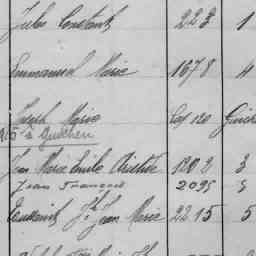 Jules Constant 223 1
Emmanuel Marie 1678 4
Joseph Marie Cas 120 Guich
à Guichen
Jean Marie Emile Aristide 1208 3
Jean François 2095 5
Toussaint Jean Marie 2215 5